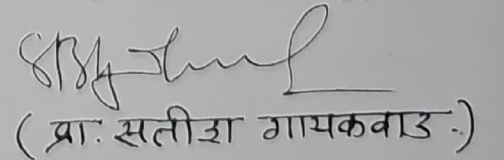 ( प्रा. सतीश गायकवाड.)